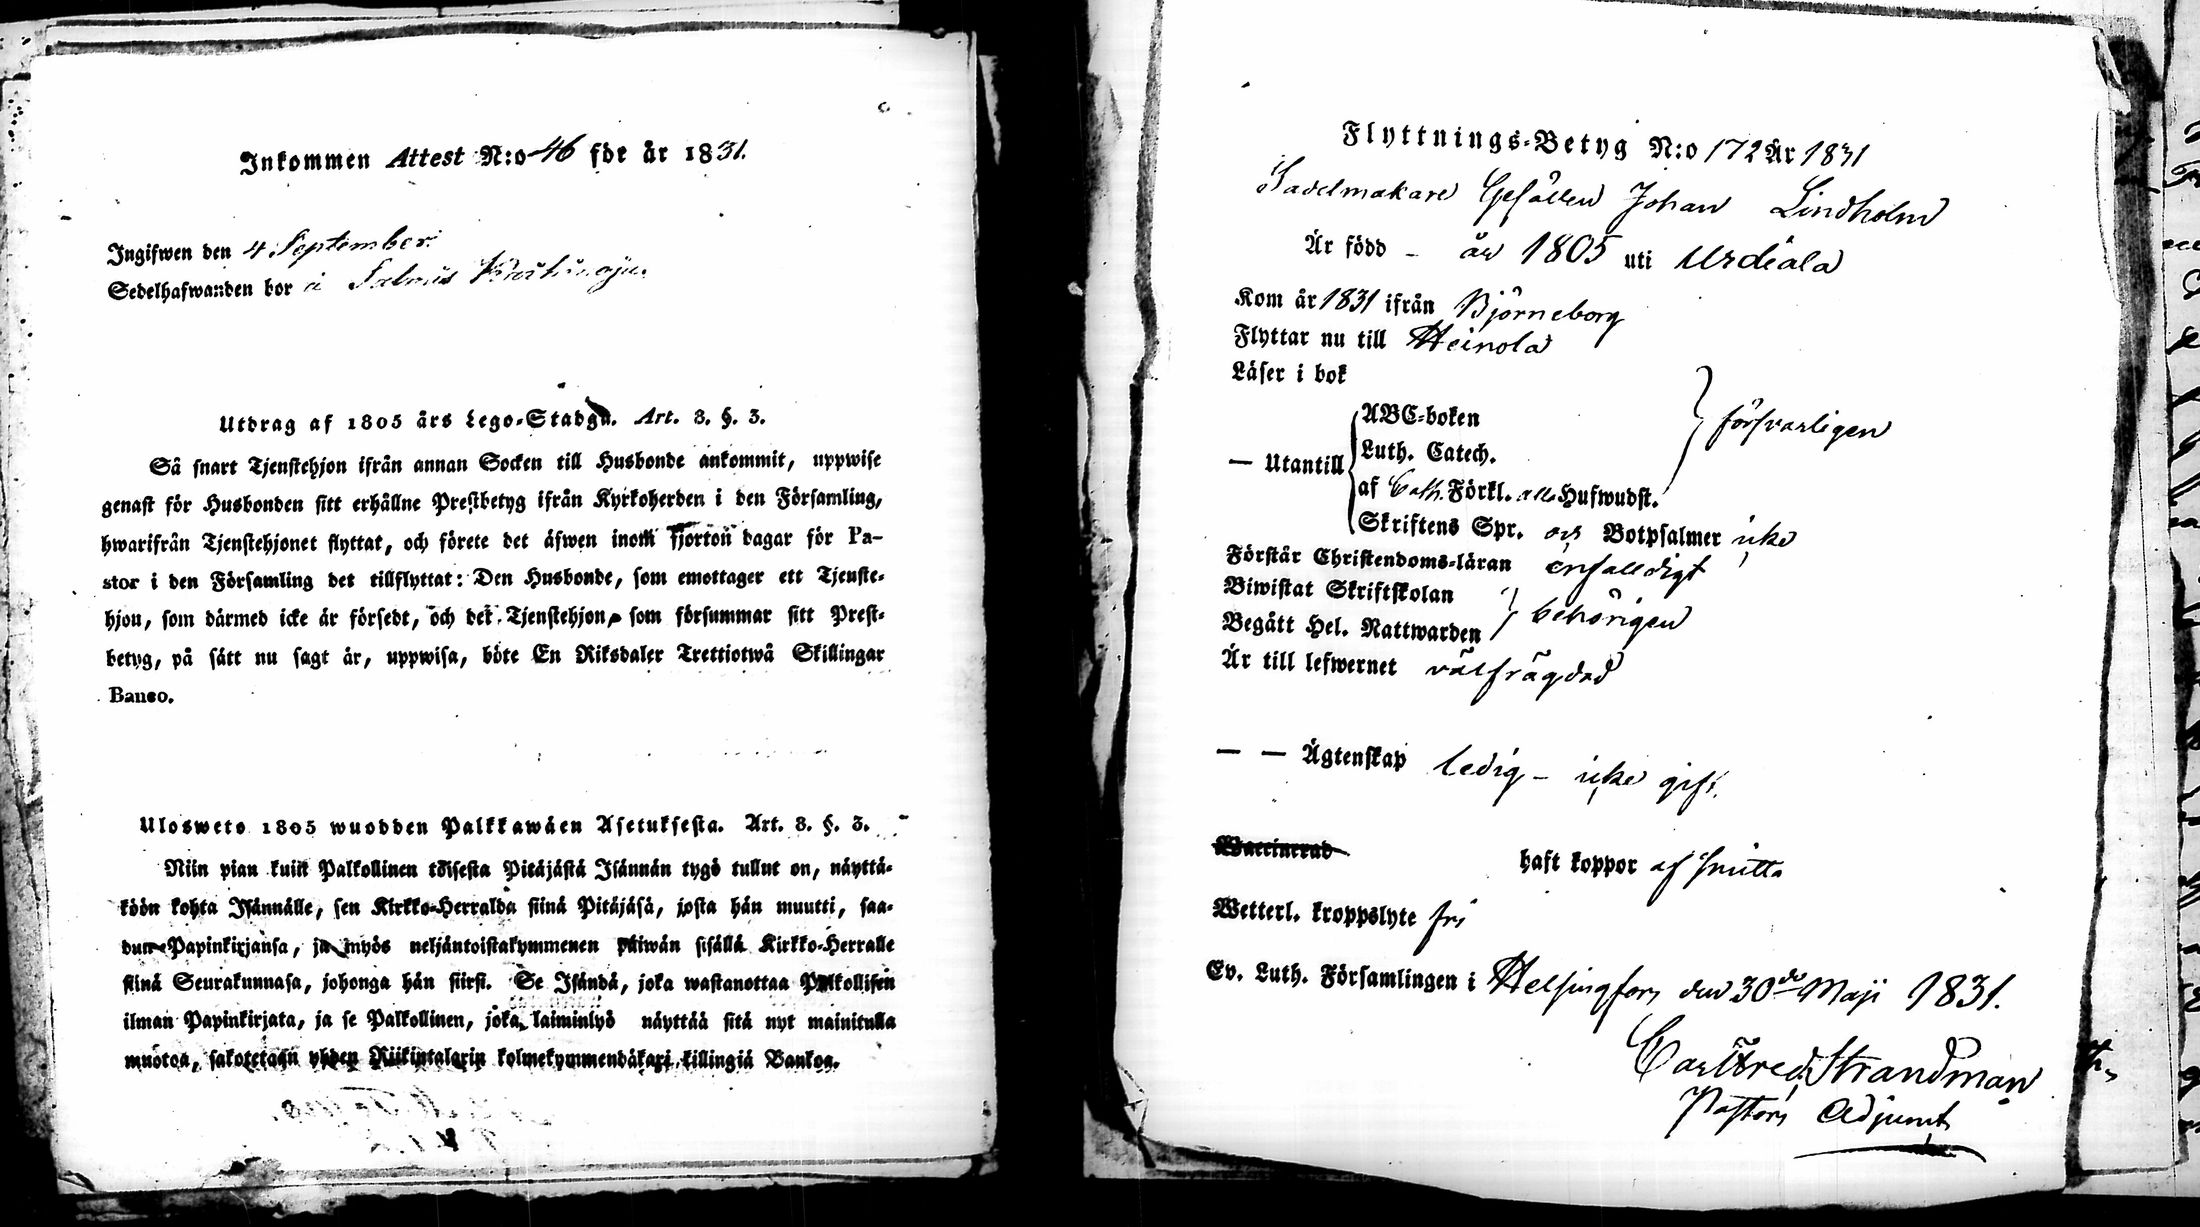 Inkommen Attest N:o 46 för år 1831.
Ingifwen den 4 September.
Sedelhafwanden bor i
Utdrag af 1805 års Lego-Stadga. Art. 3. §. 3.
Så snart Tjenstehjon ifrån annan Socken till Husbonde ankommit, uppwise
genast för Husbonden sitt erhållne Prestbetyg ifrån Kyrkoherden i den Församling,
hwarifrån Tjenstehjonet flyttat, och förete det äfwen inom fjorton dagar för Pa-
stor i den Församling det tillflyttat: Den Husbonde, som emottager ett Tjenste-
hjon, som därmed icke är försedt, och det Tjenstehjon, som försummar sitt Prest-
betyg, på sätt nu sagt är, uppwisa, böte En Riksdaler Trettiotwå Skillingar
Banco.
Ulosweto 1805 wuodden Palkkawäen Asetuksesta. Art. 3. §. 3.
Niin pian kuin Palkollinen toisesta Pitäjästä Isännän tygö tullut on, näyttä-
köön kohta Isännälle, sen Kirkko-Herralda siinä Pitäjäsä, josta hän muutti, saa-
dun Papinkirjansa, ja myös neljäntoistakymmenen päiwän sisällä Kirkko-Herralle
siinä Seurakunnasa, johonga hän siirsi. Se Isändä, joka wastanottaa Palkollisen
ilman Papinkirjata, ja se Palkollinen, joka laiminlyö näyttää sitä nyt mainitulla
muotoa, sakotetaan yhden Riikintalarin kolmekymmendäkaxi killingiä Bankoa.
Flyttnings-Betyg N:o 172 År 1831
Sadelmakare Gesällen Johan Lindholm
Är född - år 1805 uti Urdiala
Kom år 1831 ifrån Björneborg
Flyttar nu till Heinola
Läser i bok
ABC-boken
försvarligen
— Utantill Luth. Catech.
af Cath. Förkl. alla Hufwudst.
Skriftens Spr. och Botpsalmer icke
Förstår Christendoms-läran enfalldigt
Biwistat Skriftskolan
Begått Hel. Nattwarden behörigen
Är till lefwernet välfrägdad
— — Ägtenskap ledig - icke gift.
Waccinerad haft koppor af smitta
Wetterl. kroppslyte fri
Ev. Luth. Församlingen i Helsingfors den 30de Maji 1831.
Carl Fred. Strandman
Pastors Adjunct